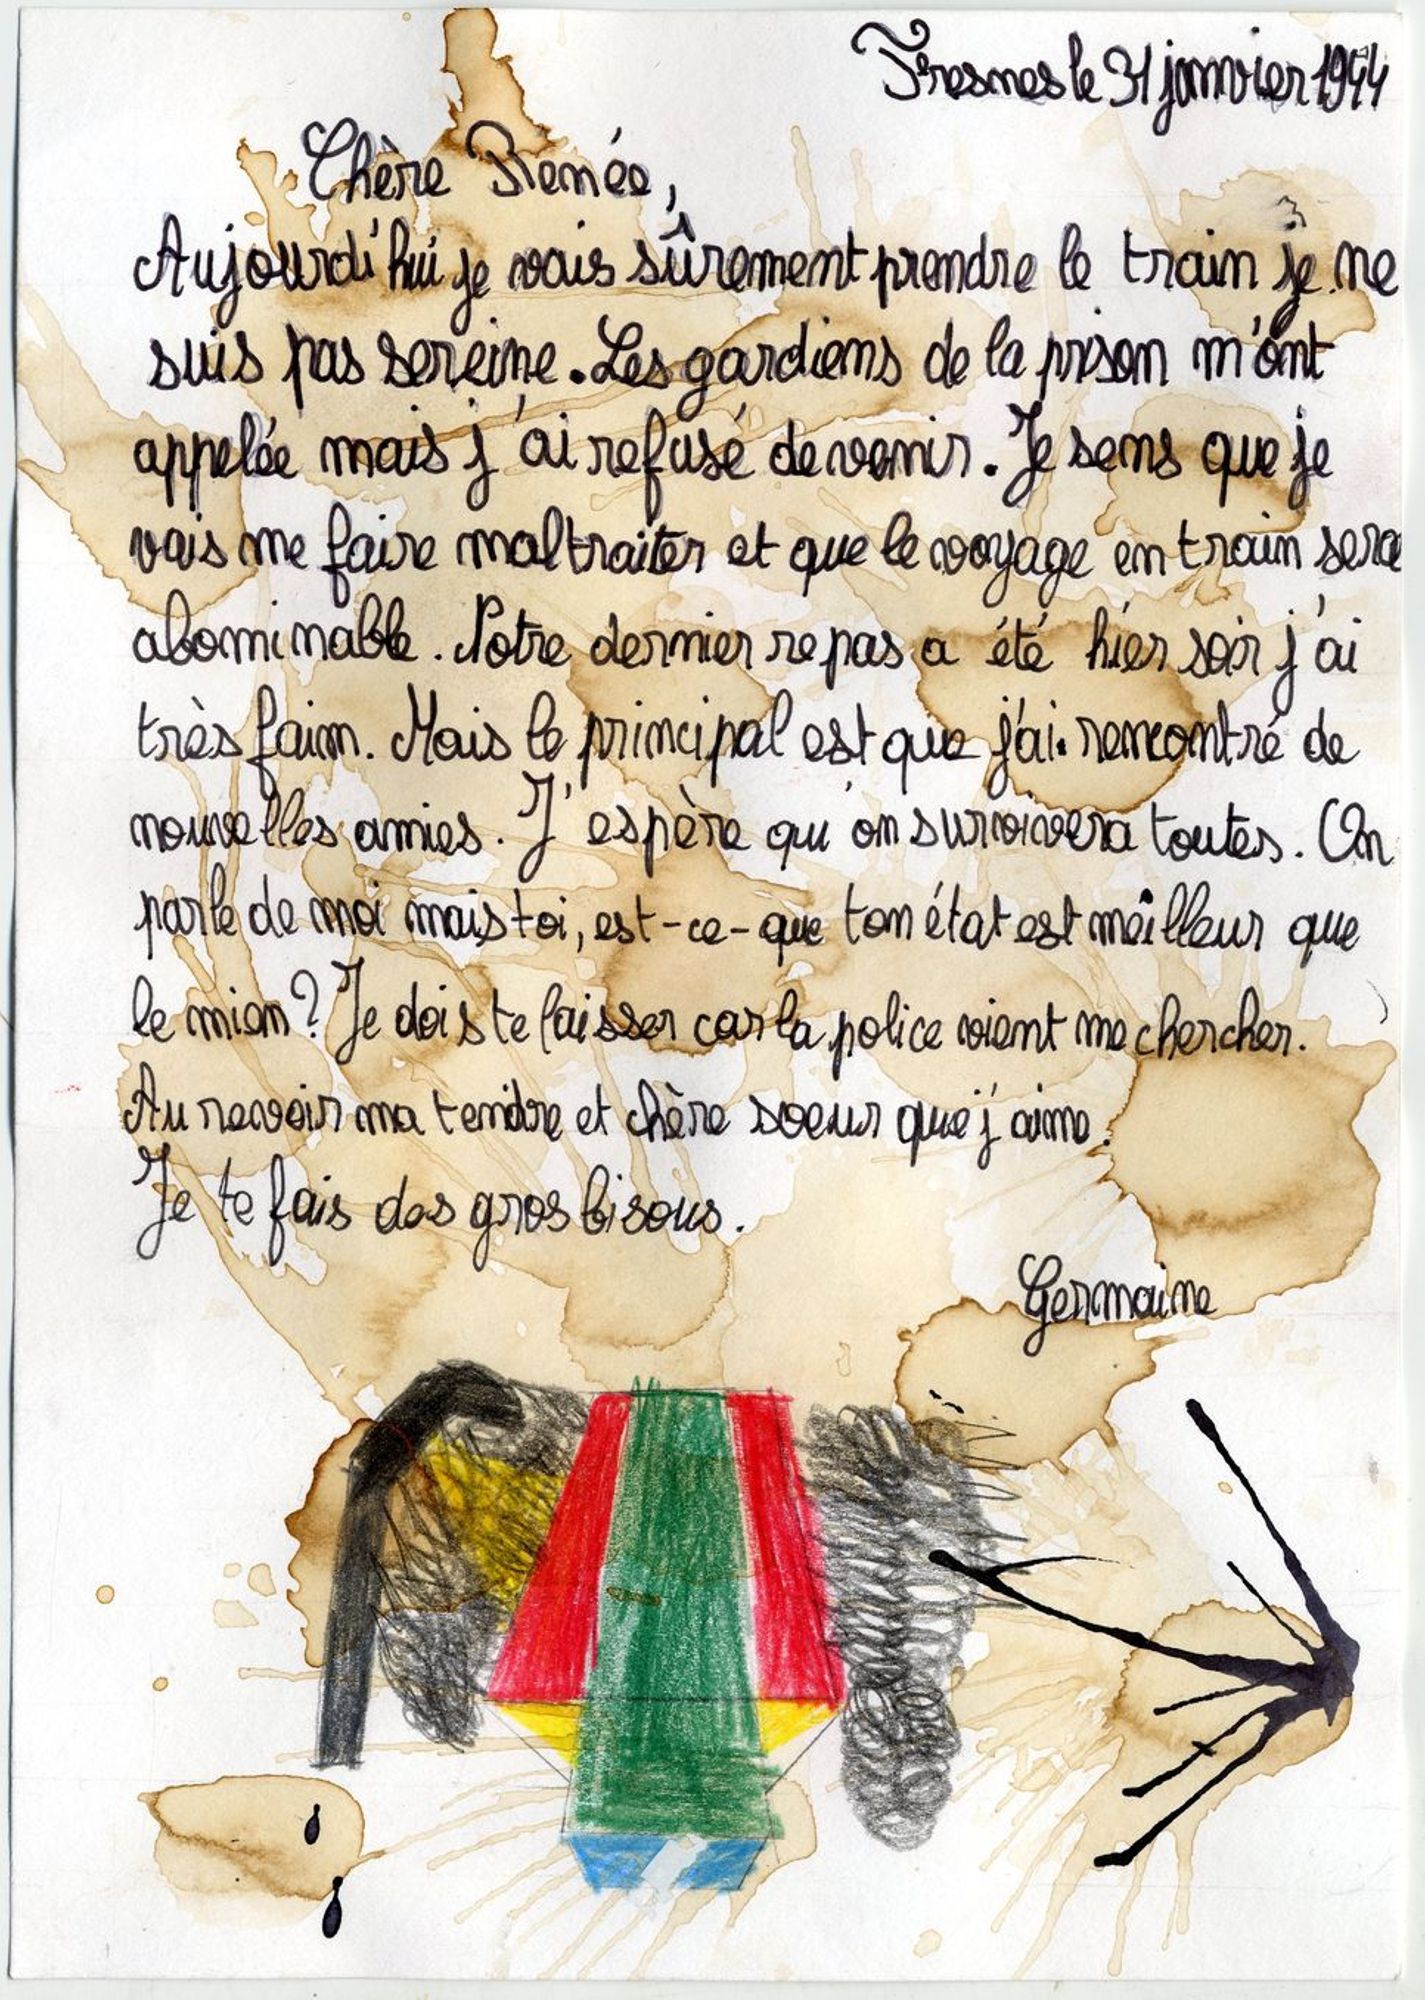 Fresnes le 31 janvier 1944
Chère Renée,
Aujourd'hui je vais sûrement prendre le train je ne
suis pas sereine. Les gardiens de la prison m'ont
appelée mais j'ai refusé de venir. Je sens que je
vais me faire maltraiter et que le voyage en train sera
abominable. Notre dernier repas a été hier soir j'ai
très faim. Mais le principal est que j'ai rencontré de
nouvelles amies. J'espère qu'on survivera toutes. On
parle de moi mais toi, est-ce-que ton état est meilleur que
le mien ? Je dois te laisser car la police vient me chercher.
Au revoir ma tendre et chère soeur que j'aime.
Je te fais des gros bisous.
Germaine